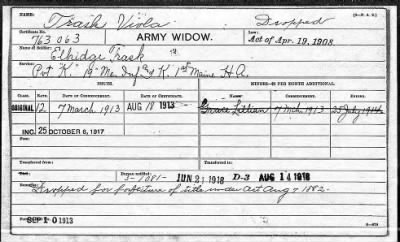 Trask Viola Dropped
Certificate No. 763 063 ARMY WIDOW. Law: Act of Apr. 19, 1908
Name of Soldier: Elbridge Trask
Service: Pvt "K" 19" Me. Inf. & K. 1st Maine H.A.
ISSUE. MINORS—$2 PER MONTH ADDITIONAL.
CLASS. RATE. DATE OF COMMENCEMENT. DATE OF CERTIFICATE. DATE OF COMMENCEMENT.
ORIGINAL 12 7 March 1913 AUG 18 1913 Grace Lillian 7 Mch. 1913 25 July 1914
INC. 25 OCTOBER 6, 1917
Transferred from
Transferred to
JUN 21 1918 D-3 AUG 14 1918
Dropped for forfeiture of title under Act Aug 7 1882.
SEP 10 1913